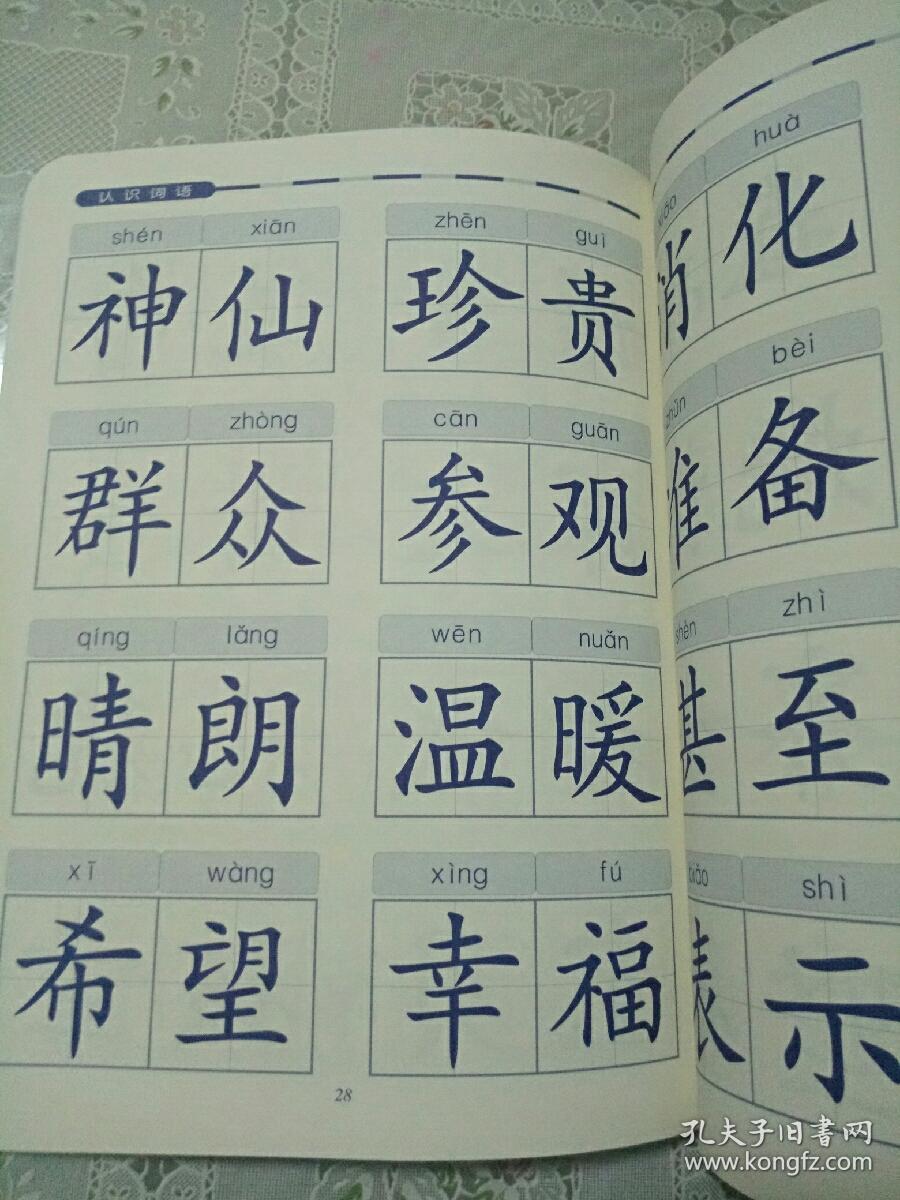 认识词语
shén xiān zhēn guì
神仙 珍贵
qún zhòng cān guān
群众 参观
qíng lǎng wēn nuǎn
晴朗 温暖
xī wàng xìng fú
希望 幸福
28
huà
消化
bèi
准备
shèn zhì
甚至
shì
表示
孔夫子旧书网
www.kongfz.com